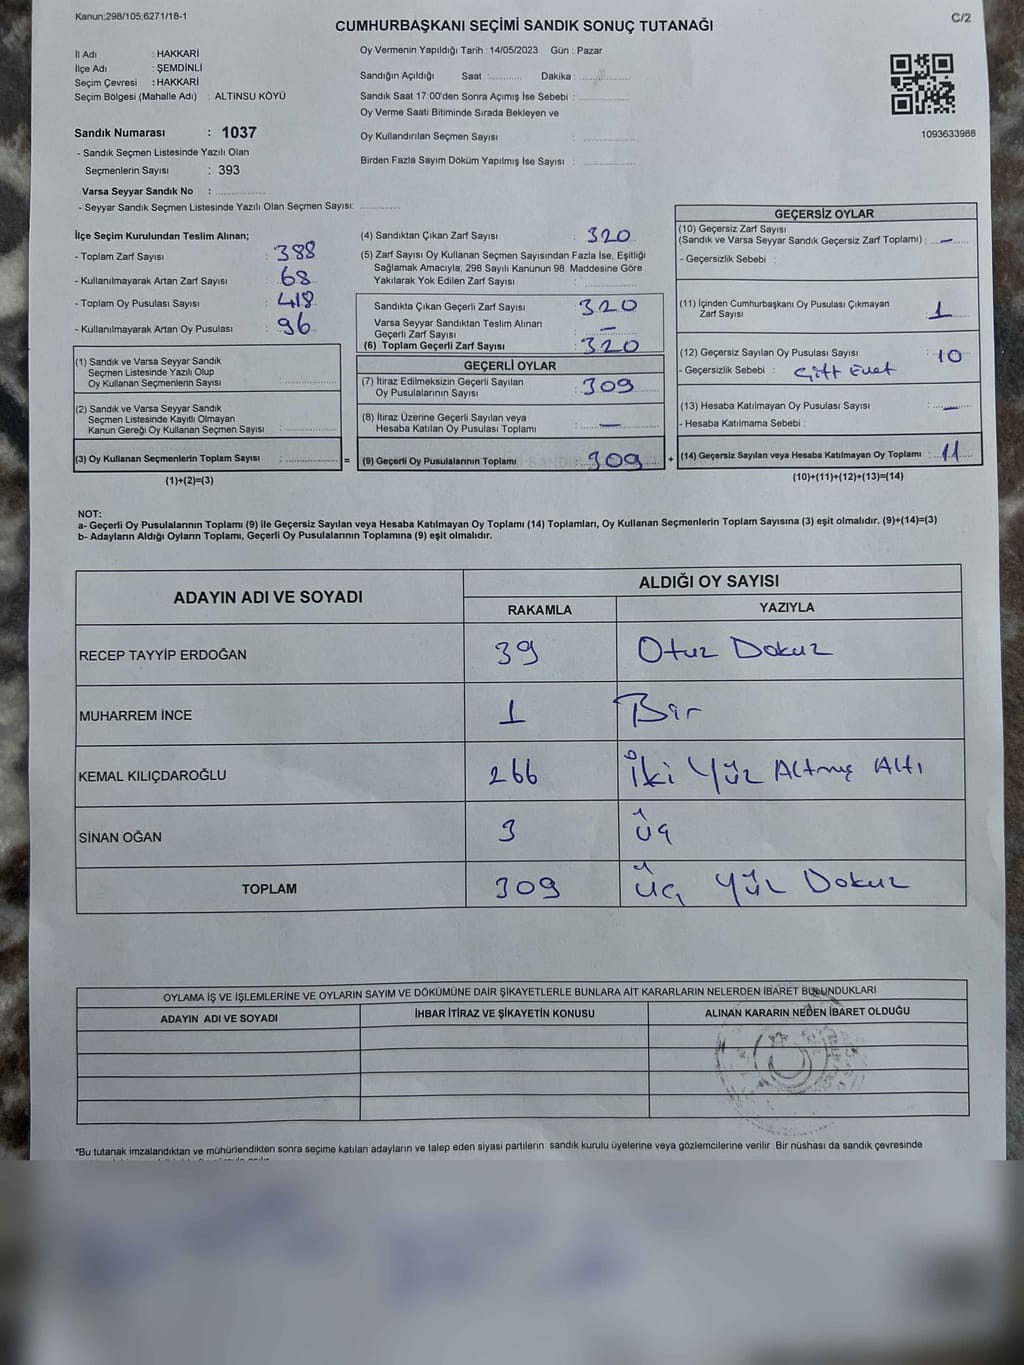 Kanun;298/105;6271/18-1
C/2
CUMHURBAŞKANI SEÇİMİ SANDIK SONUÇ TUTANAĞI
İl Adı : HAKKARİ
İlçe Adı : ŞEMDİNLİ
Seçim Çevresi : HAKKARİ
Seçim Bölgesi (Mahalle Adı) : ALTINSU KÖYÜ
Sandık Numarası : 1037
- Sandık Seçmen Listesinde Yazılı Olan
Seçmenlerin Sayısı : 393
Varsa Seyyar Sandık No : ..............
- Seyyar Sandık Seçmen Listesinde Yazılı Olan Seçmen Sayısı: ............
Oy Vermenin Yapıldığı Tarih : 14/05/2023 Gün : Pazar
Sandığın Açıldığı Saat :........... Dakika :................
Sandık Saat 17:00'den Sonra Açımış İse Sebebi : ................
Oy Verme Saati Bitiminde Sırada Bekleyen ve
Oy Kullandırılan Seçmen Sayısı : ................
Birden Fazla Sayım Döküm Yapılmış İse Sayısı : ................
1093633988
İlçe Seçim Kurulundan Teslim Alınan;
- Toplam Zarf Sayısı : 388
- Kullanılmayarak Artan Zarf Sayısı : 68
- Toplam Oy Pusulası Sayısı : 418
- Kullanılmayarak Artan Oy Pusulası : 96
(1) Sandık ve Varsa Seyyar Sandık
Seçmen Listesinde Yazılı Olup
Oy Kullanan Seçmenlerin Sayısı : ................
(2) Sandık ve Varsa Seyyar Sandık
Seçmen Listesinde Kayıtlı Olmayan
Kanun Gereği Oy Kullanan Seçmen Sayısı : ................
(3) Oy Kullanan Seçmenlerin Toplam Sayısı : ................ =
(1)+(2)=(3)
(4) Sandıktan Çıkan Zarf Sayısı : 320
(5) Zarf Sayısı Oy Kullanan Seçmen Sayısından Fazla İse, Eşitliği
Sağlamak Amacıyla, 298 Sayılı Kanunun 98. Maddesine Göre
Yakılarak Yok Edilen Zarf Sayısı : ................
Sandıkta Çıkan Geçerli Zarf Sayısı : 320
Varsa Seyyar Sandıktan Teslim Alınan
Geçerli Zarf Sayısı : —
(6) Toplam Geçerli Zarf Sayısı : 320
GEÇERLİ OYLAR
(7) İtiraz Edilmeksizin Geçerli Sayılan
Oy Pusulalarının Sayısı : 309
(8) İtiraz Üzerine Geçerli Sayılan veya
Hesaba Katılan Oy Pusulası Toplamı : —
(9) Geçerli Oy Pusulalarının Toplamı : 309 +
GEÇERSİZ OYLAR
(10) Geçersiz Zarf Sayısı
(Sandık ve Varsa Seyyar Sandık Geçersiz Zarf Toplamı) : —
- Geçersizlik Sebebi :
(11) İçinden Cumhurbaşkanı Oy Pusulası Çıkmayan
Zarf Sayısı : 1
(12) Geçersiz Sayılan Oy Pusulası Sayısı : 10
- Geçersizlik Sebebi : Çift Evet
(13) Hesaba Katılmayan Oy Pusulası Sayısı : —
- Hesaba Katılmama Sebebi :
(14) Geçersiz Sayılan veya Hesaba Katılmayan Oy Toplamı : 11
(10)+(11)+(12)+(13)=(14)
NOT:
a- Geçerli Oy Pusulalarının Toplamı (9) ile Geçersiz Sayılan veya Hesaba Katılmayan Oy Toplamı (14) Toplamları, Oy Kullanan Seçmenlerin Toplam Sayısına (3) eşit olmalıdır. (9)+(14)=(3)
b- Adayların Aldığı Oyların Toplamı, Geçerli Oy Pusulalarının Toplamına (9) eşit olmalıdır.
ADAYIN ADI VE SOYADI ALDIĞI OY SAYISI
RAKAMLA YAZIYLA
RECEP TAYYİP ERDOĞAN 39 Otuz Dokuz
MUHARREM İNCE 1 Bir
KEMAL KILIÇDAROĞLU 266 İki Yüz Altmış Altı
SİNAN OĞAN 3 Üç
TOPLAM 309 Üç Yüz Dokuz
OYLAMA İŞ VE İŞLEMLERİNE VE OYLARIN SAYIM VE DÖKÜMÜNE DAİR ŞİKAYETLERLE BUNLARA AİT KARARLARIN NELERDEN İBARET BULUNDUKLARI
ADAYIN ADI VE SOYADI İHBAR İTİRAZ VE ŞİKAYETİN KONUSU ALINAN KARARIN NEDEN İBARET OLDUĞU
*Bu tutanak imzalandıktan ve mühürlendikten sonra seçime katılan adayların ve talep eden siyasi partilerin sandık kurulu üyelerine veya gözlemcilerine verilir .Bir nüshası da sandık çevresinde